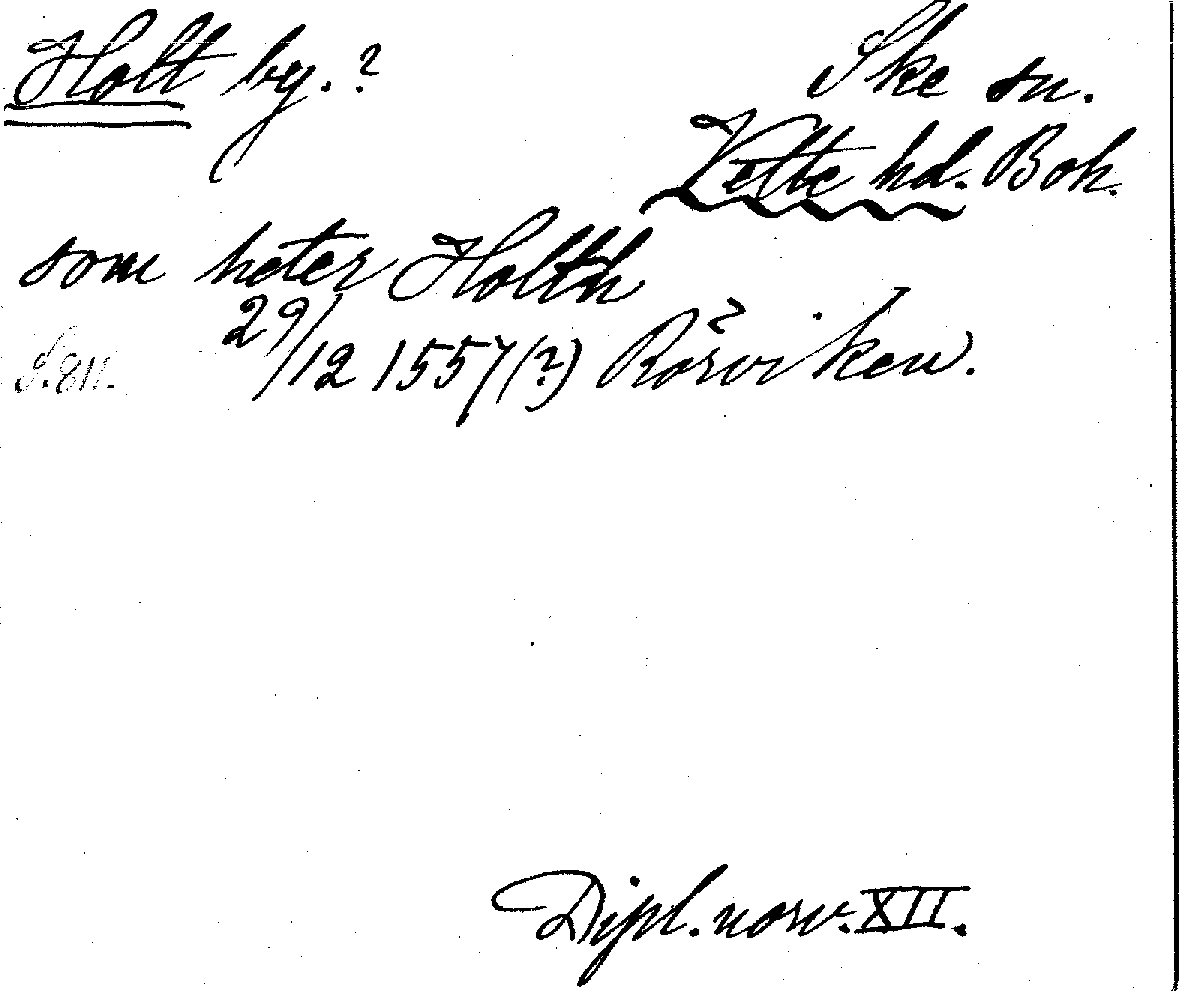 Holt by.? Ske sn.
Vette hd. Boh.
som heter Holth
S. 811. 29/12 1557(?) Rörviken.
Dipl. norv. XII.